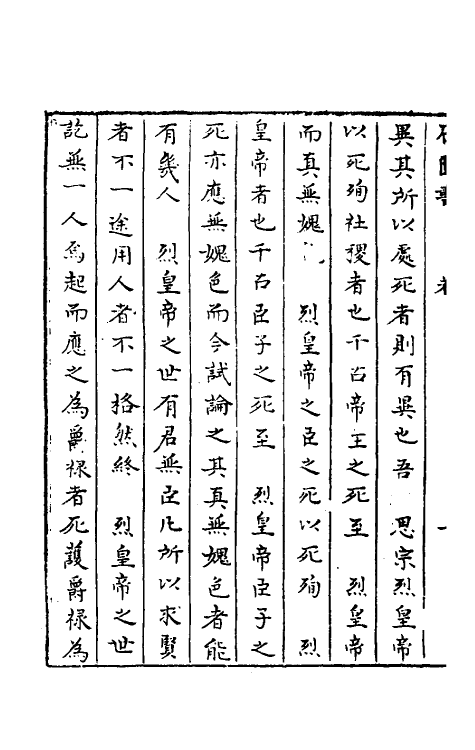 石匱書　卷　一
異其所以處死者則有異也吾　思宗烈皇帝
以死殉社稷者也千古帝王之死至　烈皇帝
而真無媿　烈皇帝之臣之死以死殉　烈
皇帝者也千古臣子之死至　烈皇帝臣子之
死亦應無媿色而今試論之其真無媿色者能
有幾人　烈皇帝之世有君無臣凡所以求賢
者不一途用人者不一格然終　烈皇帝之世
訖無一人爲起而應之為爵祿者死護爵祿為